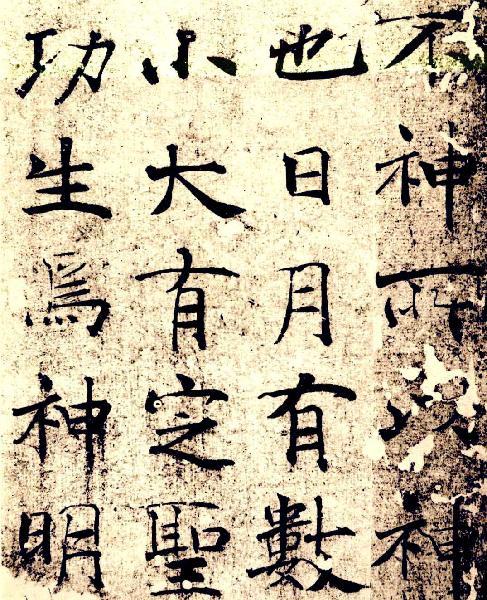 不神所以神
也日月有數
小大有定聖
功生焉神明